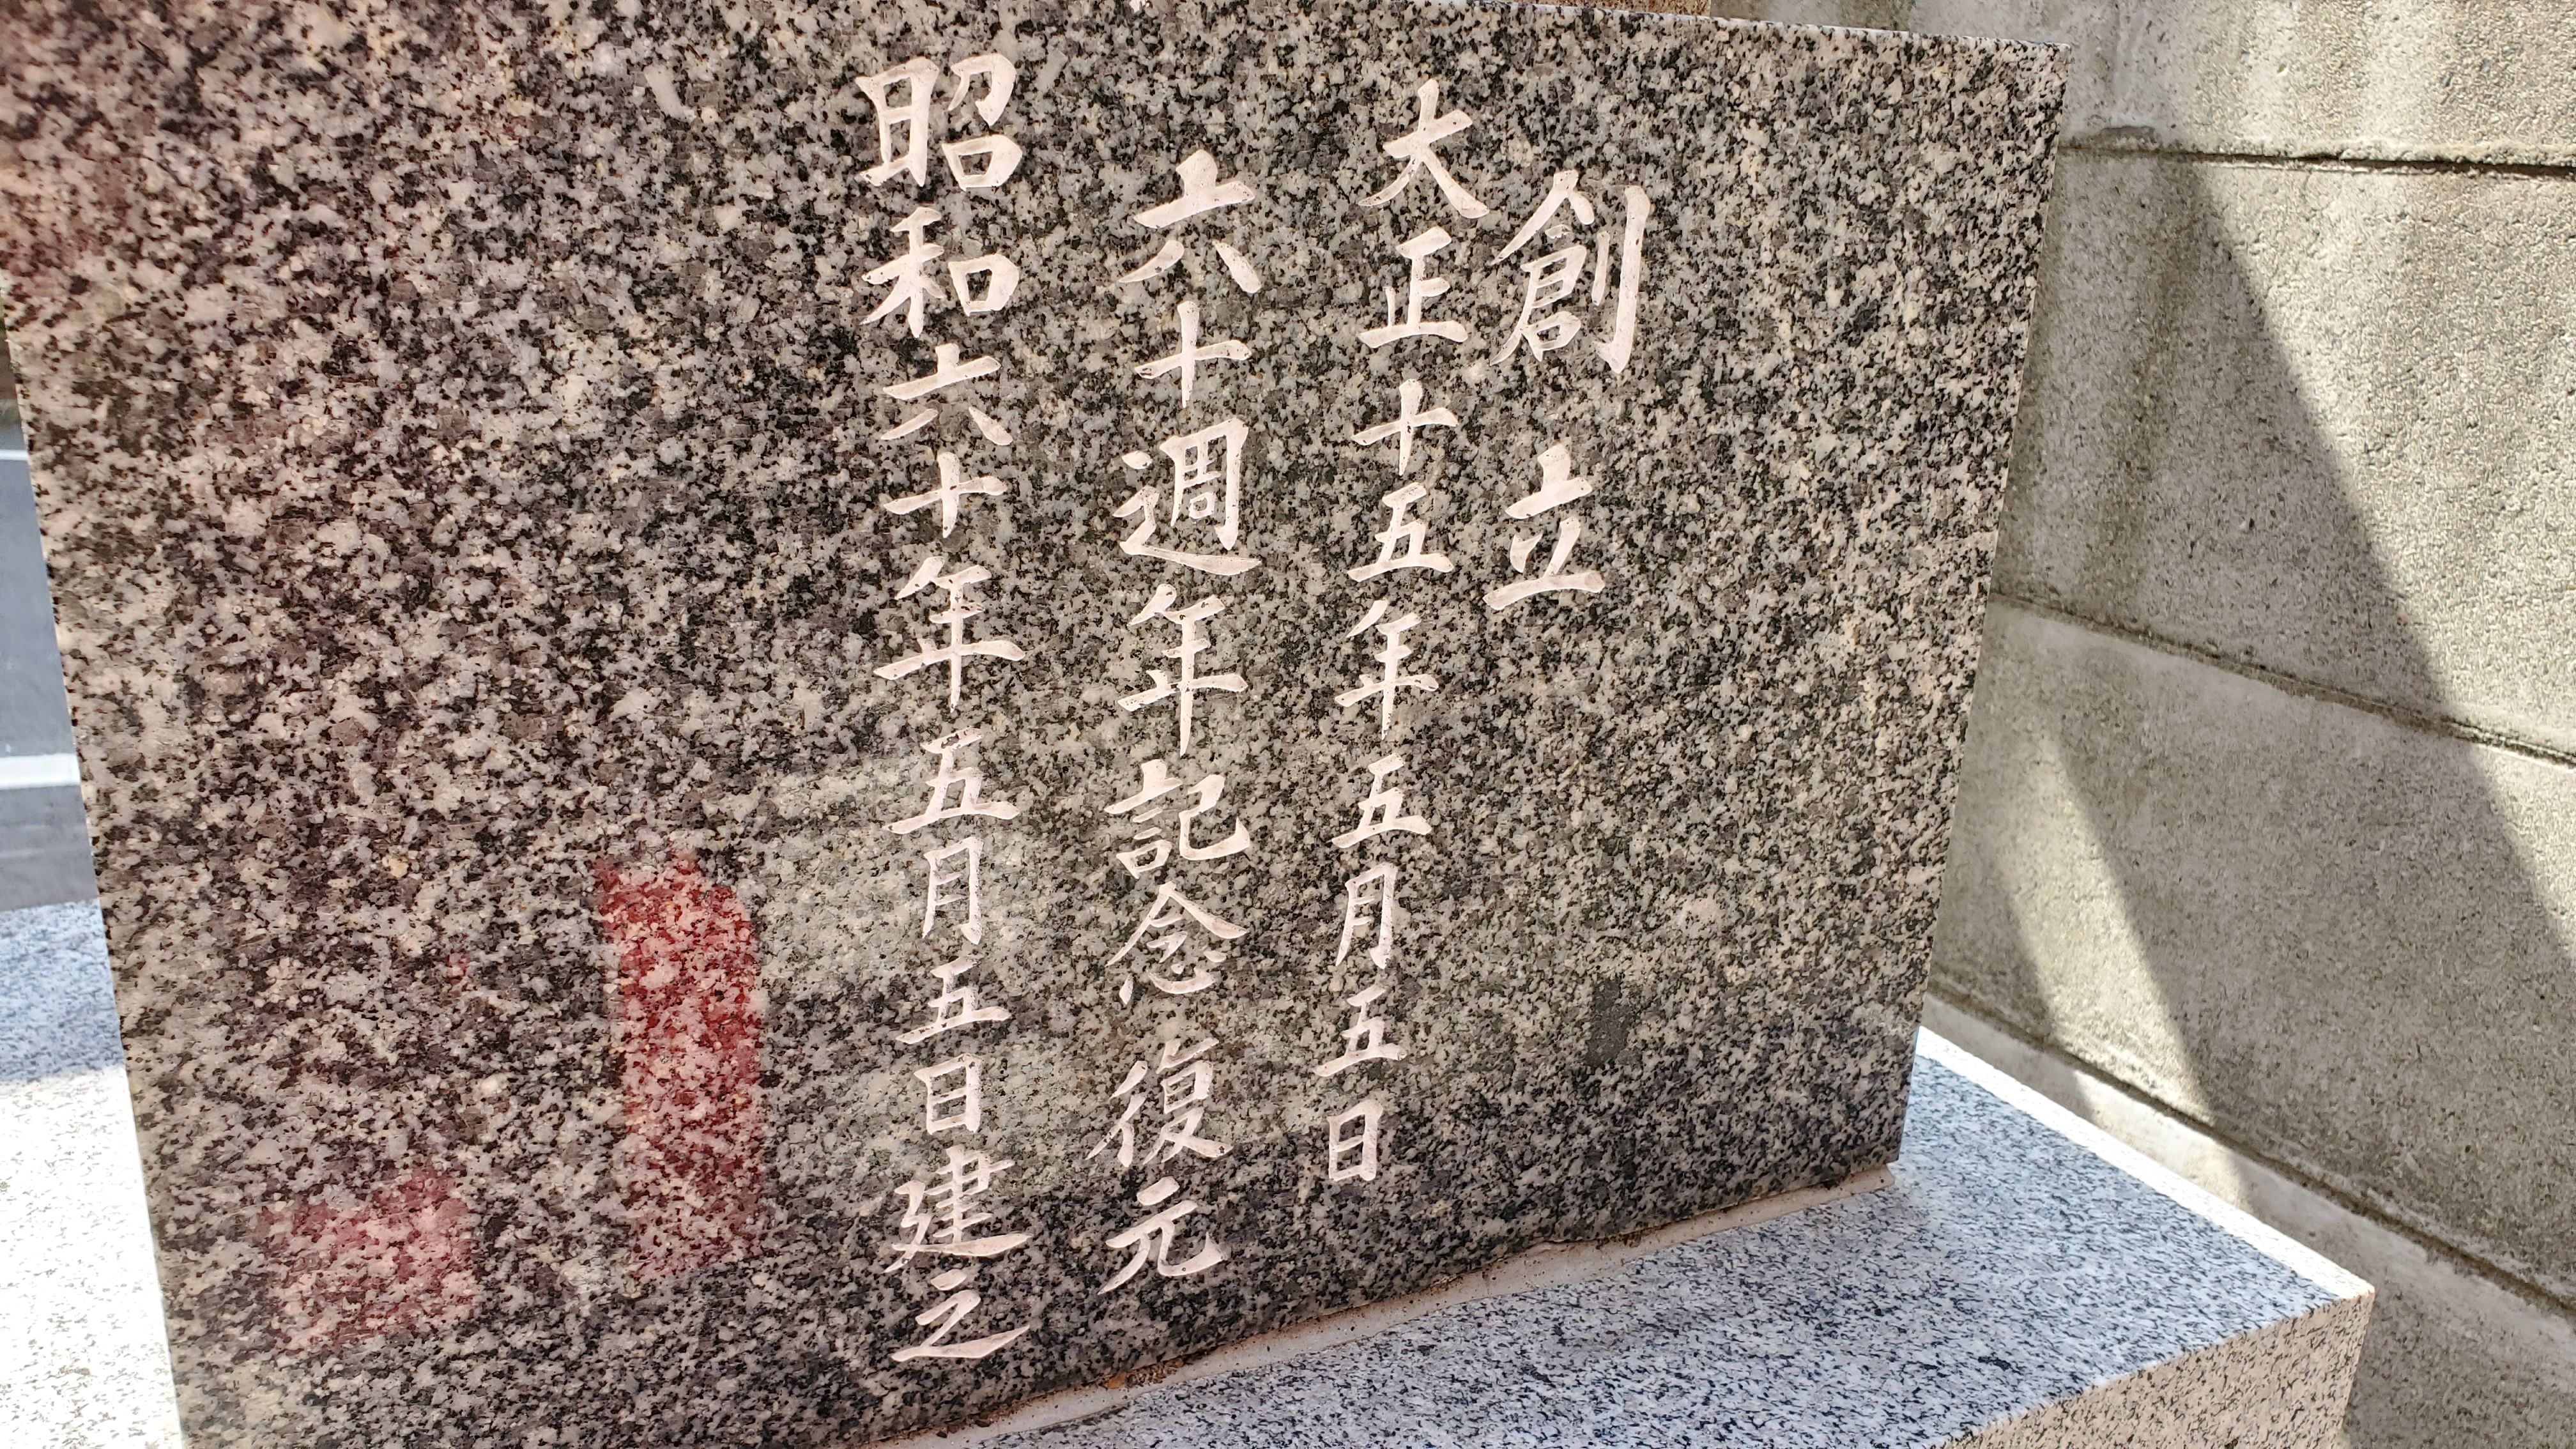 創立
大正十五年五月五日
六十週年記念復元
昭和六十年五月五日建之